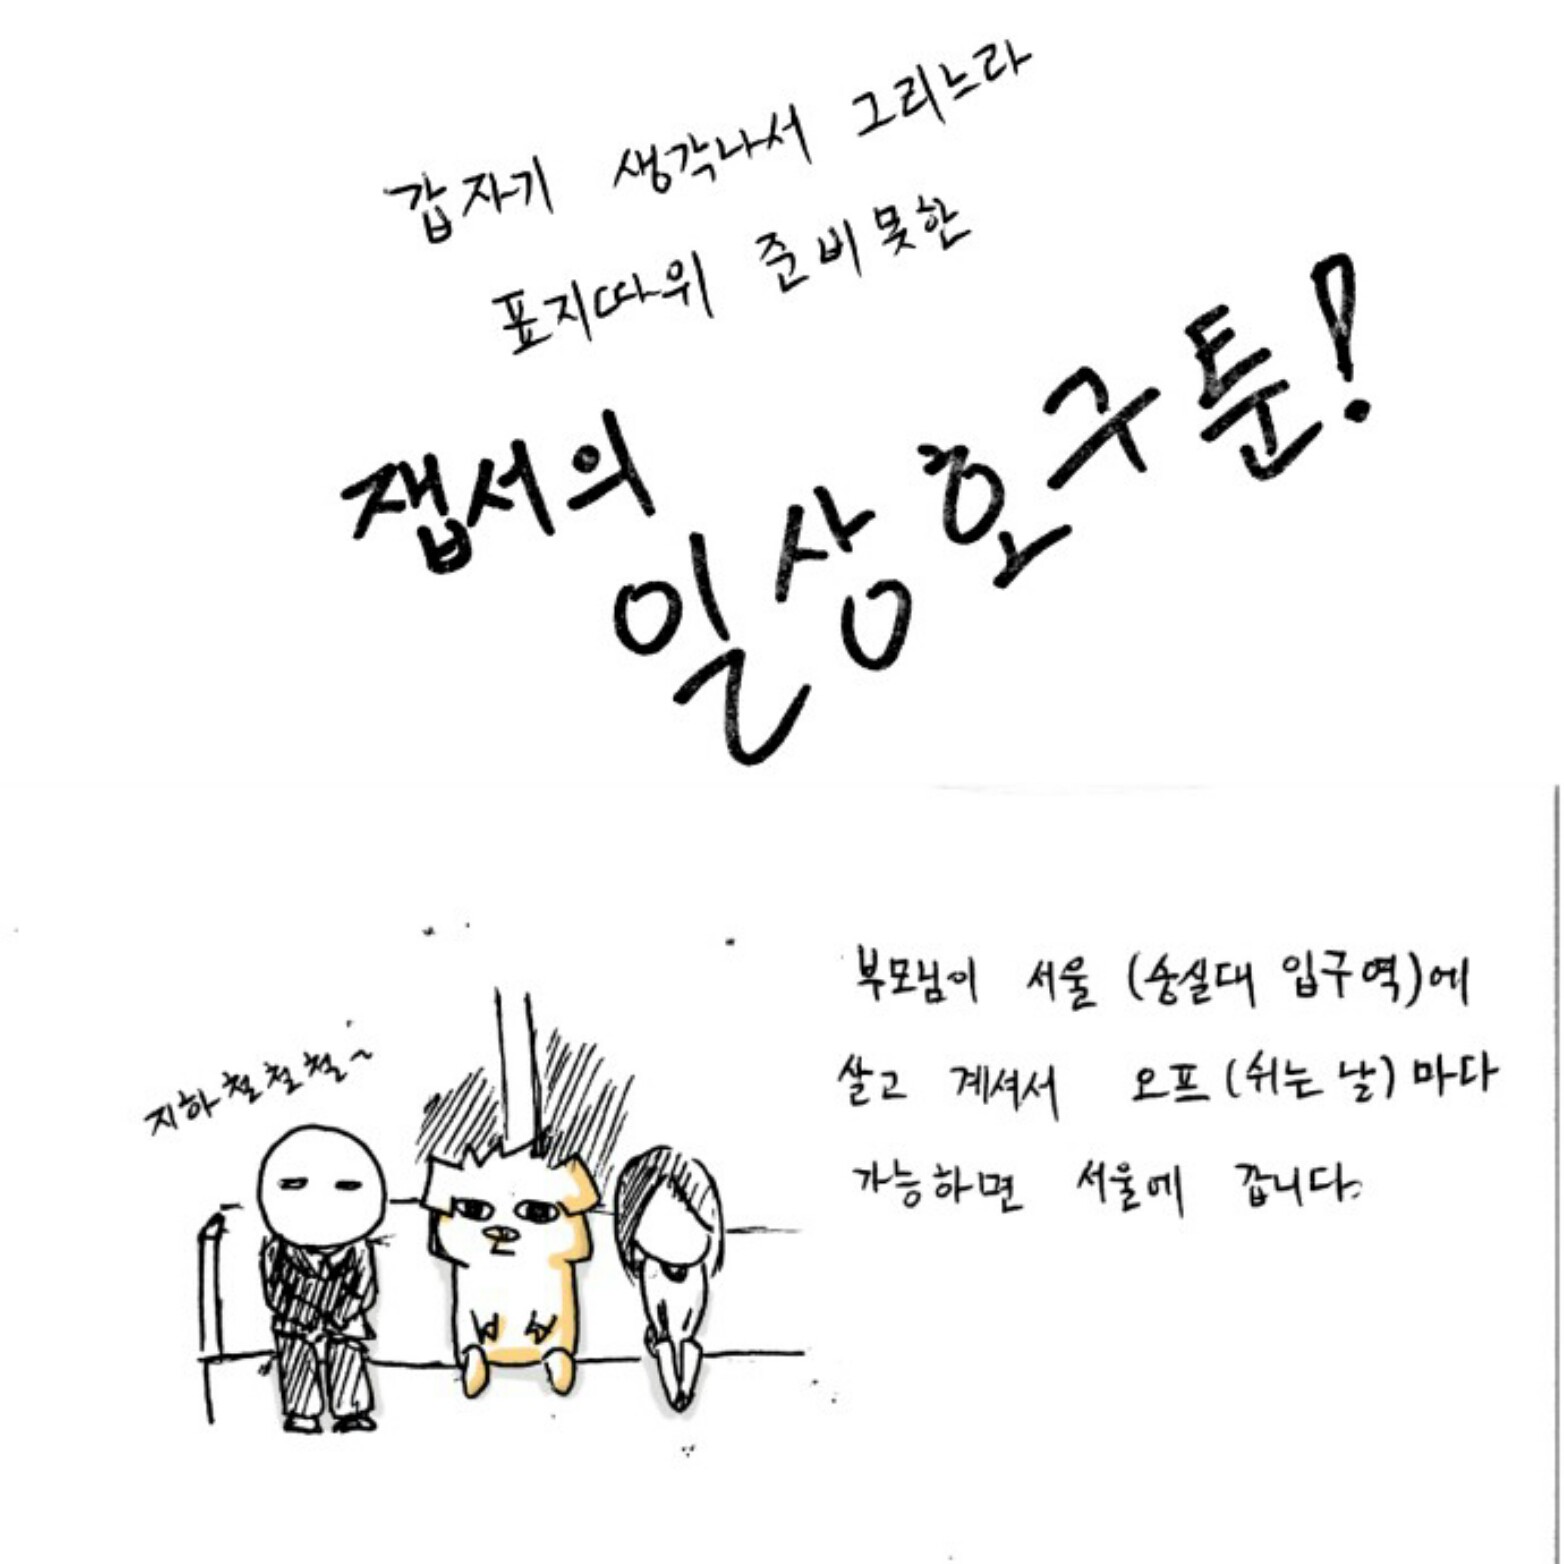 갑자기 생각나서 그리느라
표지따위 준비못한
잽서의
일상호구툰!
지하철철철~
부모님이 서울 (숭실대 입구역)에
살고 계셔서 오프 (쉬는 날) 마다
가능하면 서울에 갑니다.